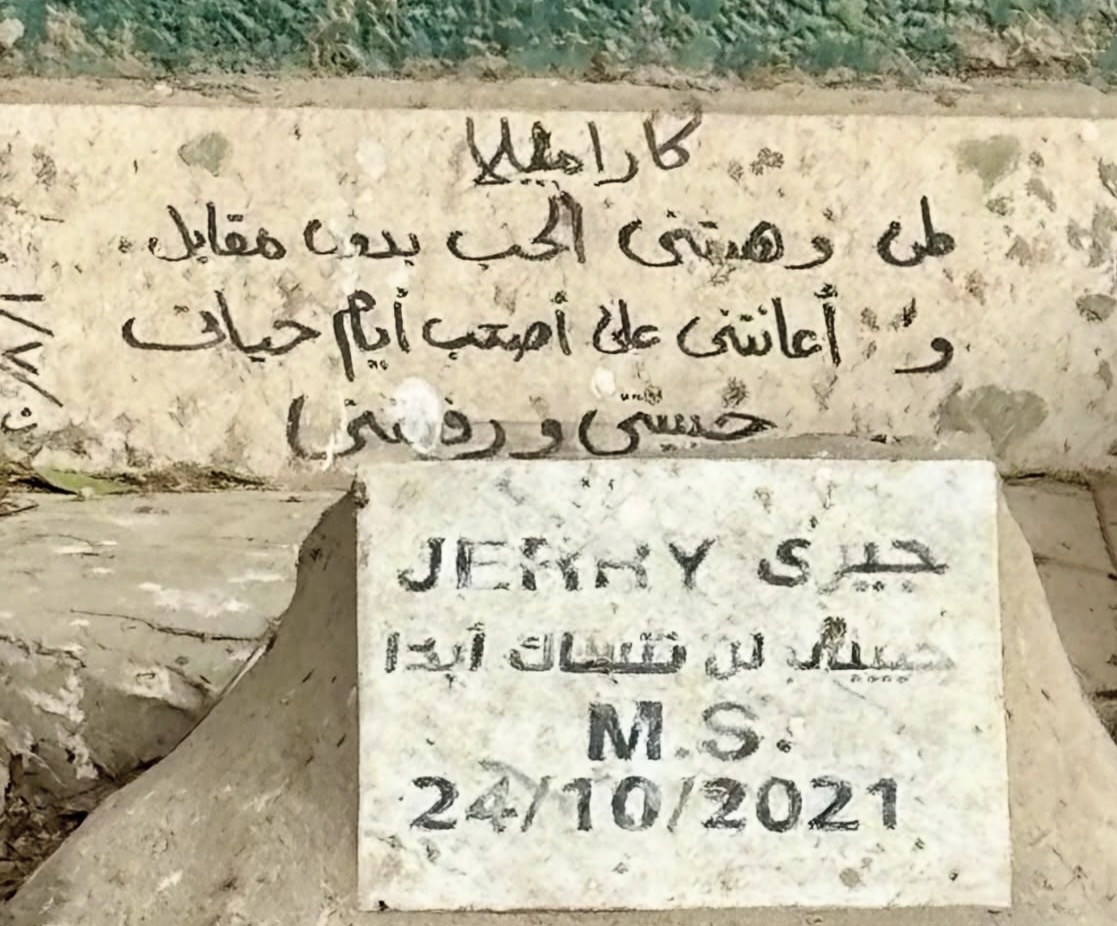 كاراميللا
لمن وهبتنى الحب بدون مقابل
و أعانتنى على أصعب أيام حياتى
حبيبتى ورفيقتى
JERRY جيرى
لن ننساك أبدا
M.S.
24/10/2021